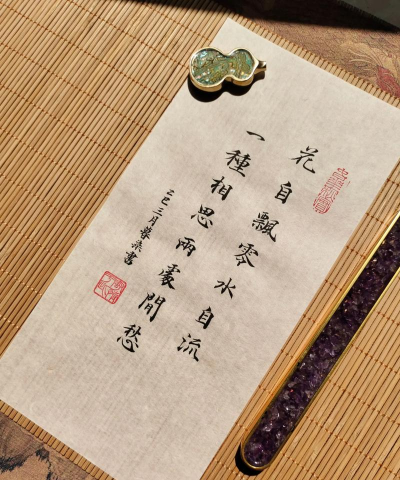 花自飄零水自流
一種相思兩處閒愁
乙巳三月